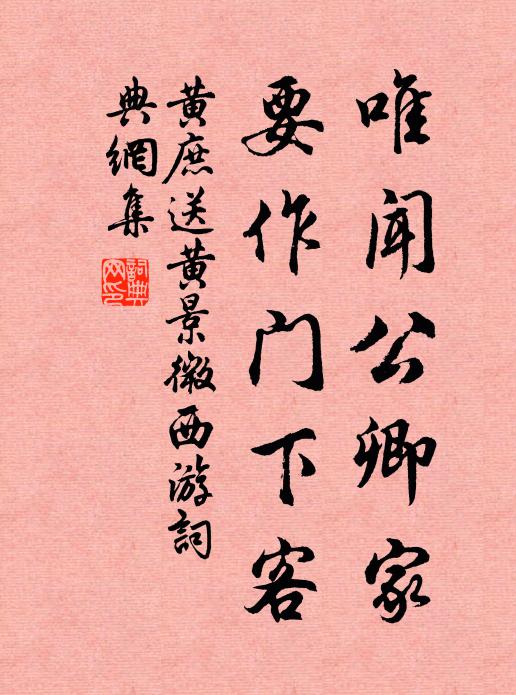 唯闻公卿家
要作门下客
黄庶送黄景微西游詞
典網集
詞典
网印